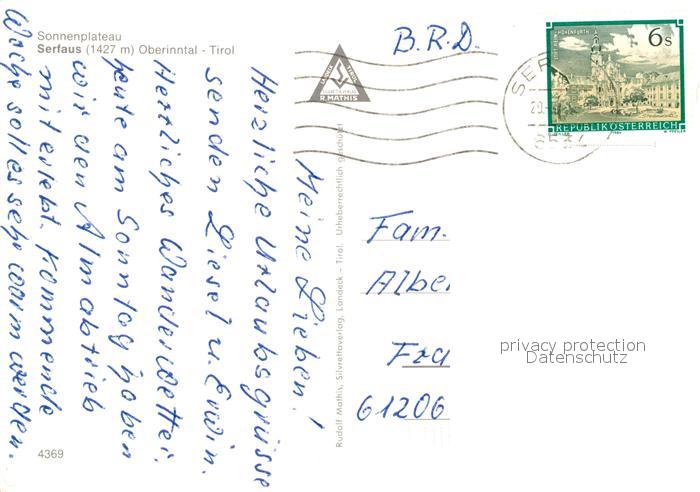 Sonnenplateau
Serfaus (1427 m) Oberinntal - Tirol
Meine Lieben!
Herzliche Urlaubsgrüsse
senden Liesel u. Erwin.
Herrliches Wanderwetter.
heute am Sonntag haben
wir den Almabtrieb
miterlebt. Kommende
Woche soll es sehr warm werden.
4369
Rudolf Mathis, Silvrettaverlag, Landeck - Tirol. Urheberrechtlich geschützt
R MATHIS
B.R.D.
6s
REPUBLIK ÖSTERREICH
Fam.
Albe
Fra
61206
privacy protection
Datenschutz